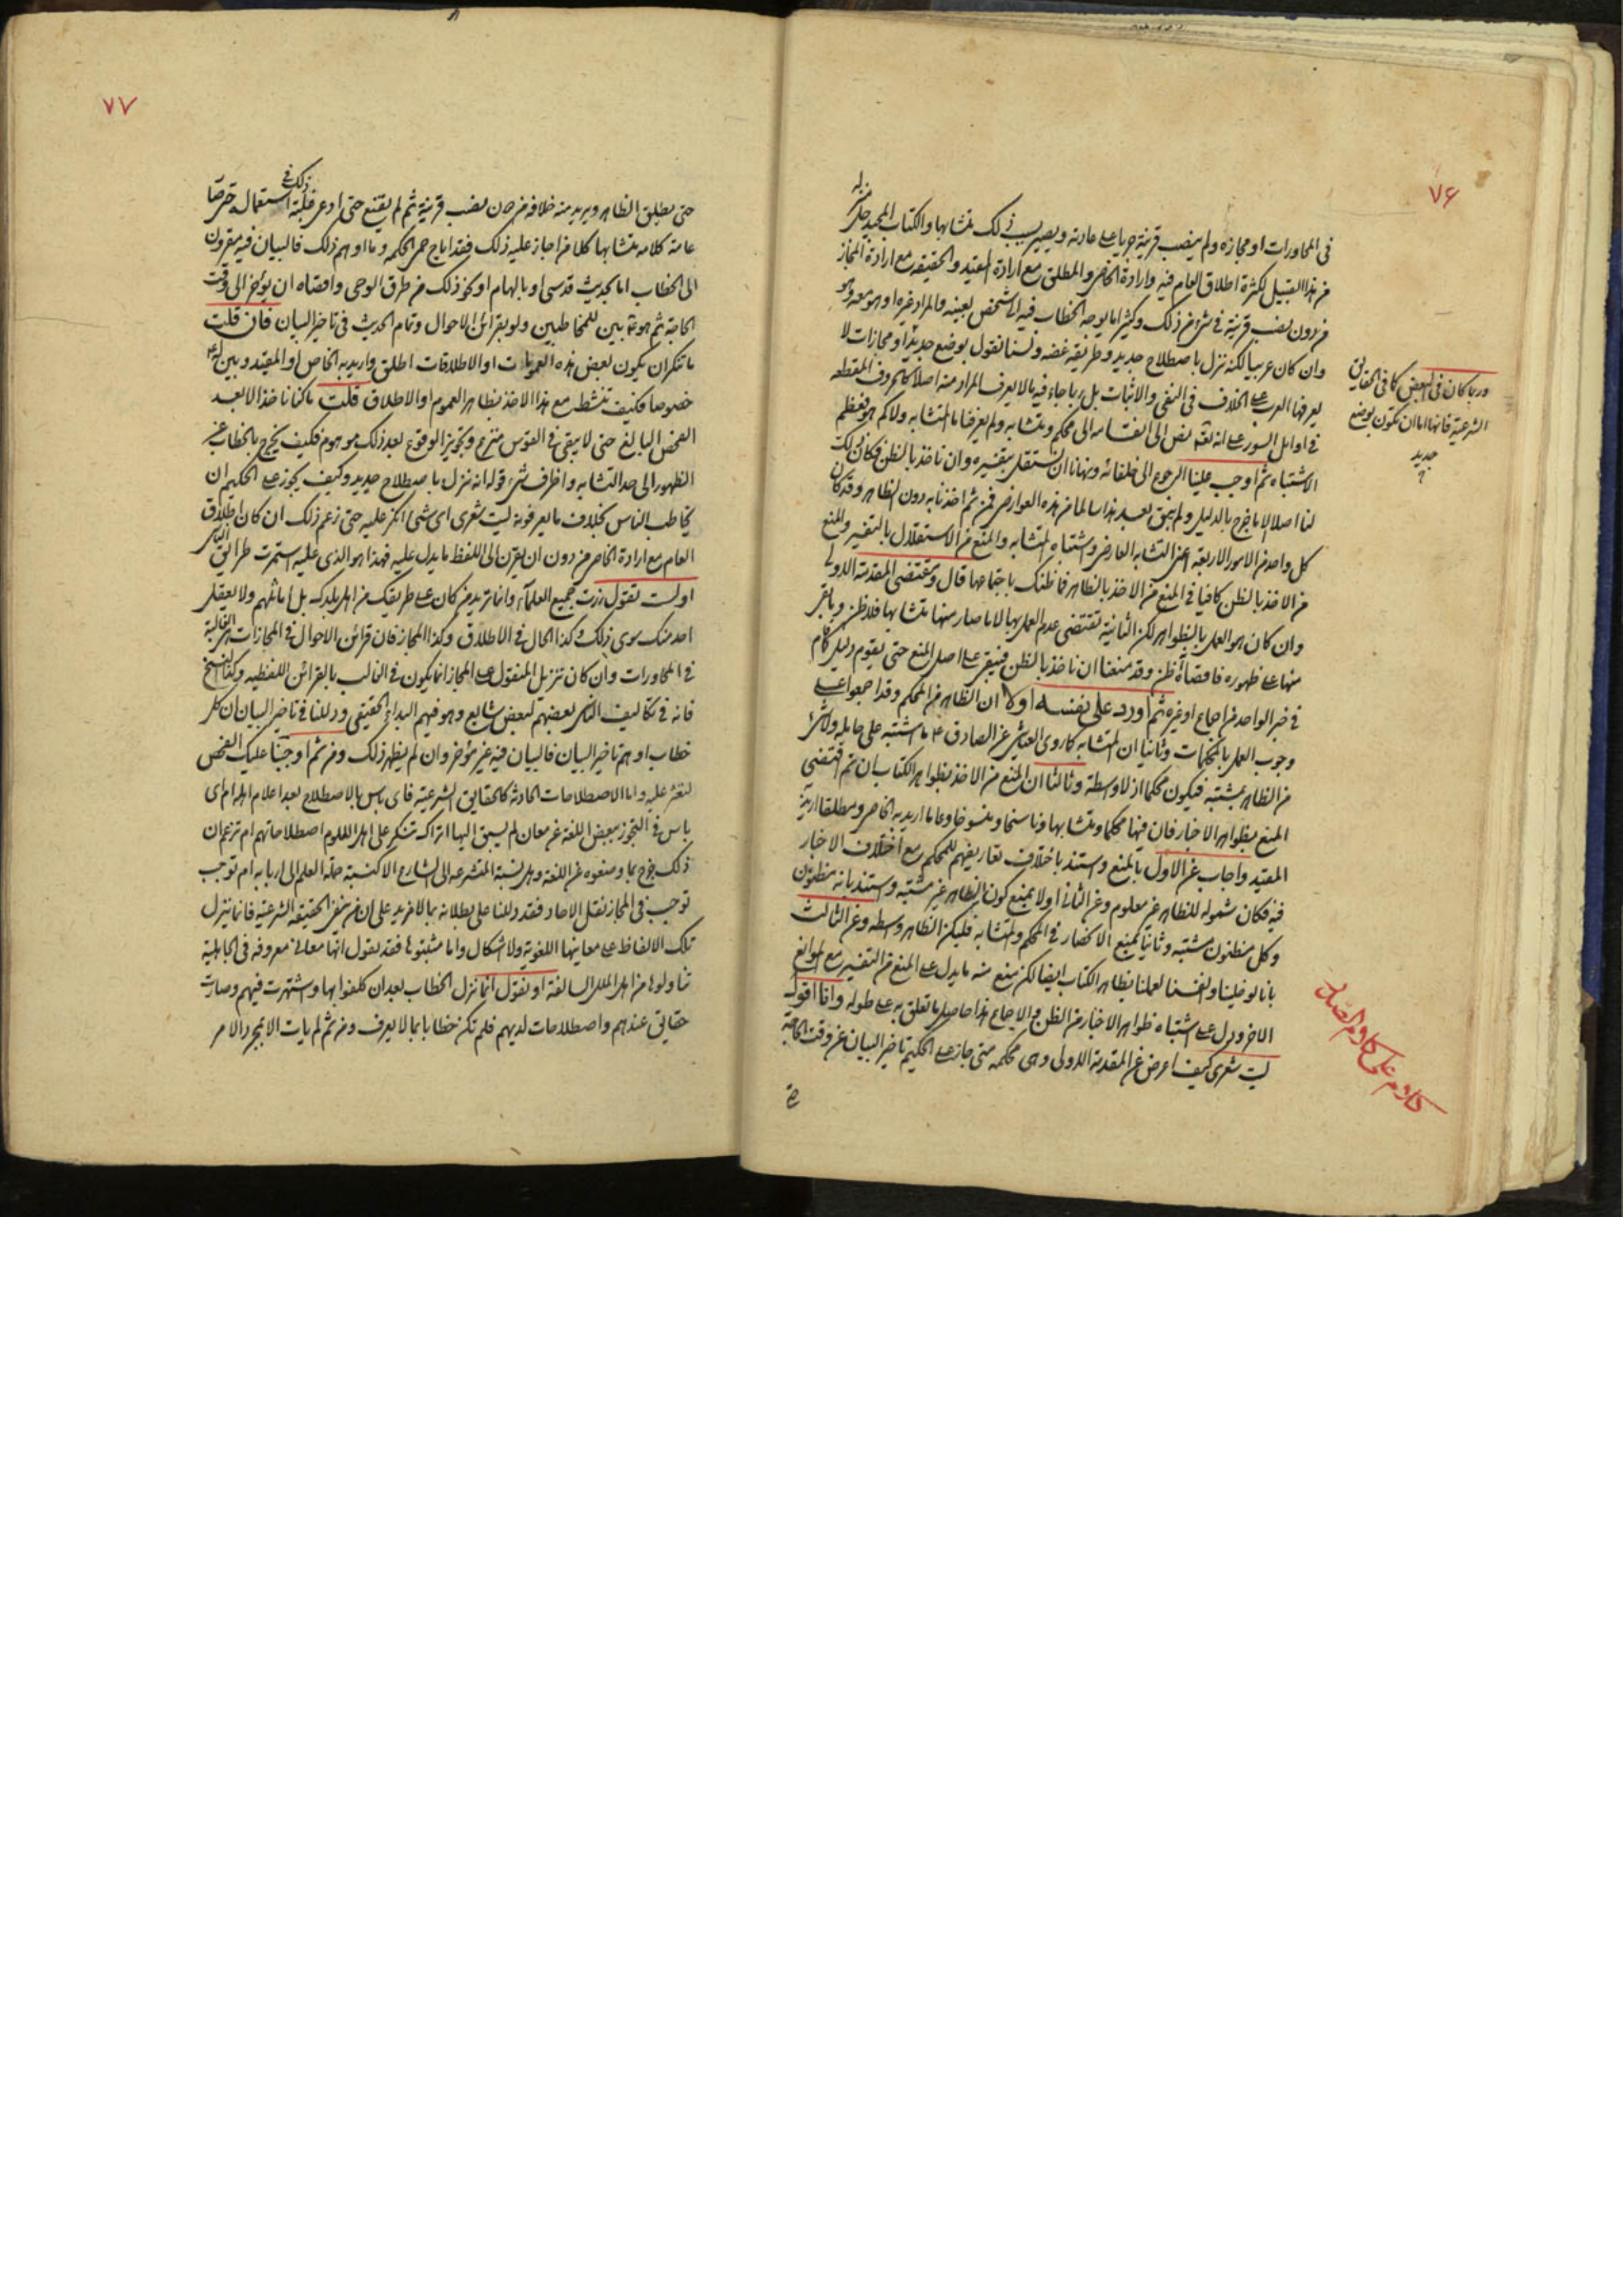 ٧۶
في المحاورات او مجازه ولم ينصب قرينة جريا على عادته ويصير بسبب ذلك متشابها والكتاب المجيد جله منزله
من هذا القبيل لكثرة اطلاق العام فيه وارادة الخاص والمطلق مع ارادة المقيد والحقيقه مع ارادة المجاز
من دون نصب قرينة في شئ من ذلك وكثيرا ما يوجه الخطاب فيه الى شخص بعينه والمراد غيره او هو معه وهو
وان كان عربيا لكنه نزل باصطلاح جديد وطريقه غضه ولسنا نقول بوضع جديد او مجازات لا
يعرفها العرب على الخلاف في النفي والاثبات بل ربما جاء فيه ما لا يعرف المراد منه اصلا كالحروف المقطعه
في اوايل السور على انه تعه نص الى انقسامه الى محكم ومتشابه ولم يعرفنا ما المتشابه ولا كم هو فعظم
الاشتباه ثم اوجب علينا الرجوع الى خلفائه ونهانا ان نستقل بتفسيره وان ناخذ بالظن فكان ذلك
لنا اصلا الا ما خرج بالدليل ولم يبق بعد هذا سالما من هذه العوارض فمن ثم اخذنا به دون الظاهر وقد كان
كل واحد من الامور الاربعة اعني التشابه العارض واشتباه المتشابه والمنع من الاستقلال بالتفسير والمنع
من الاخذ بالظن كافيا في المنع من الاخذ بالظاهر فما ظنك باجتماعها قال ومقتضى المقدمة الاولى
وان كان هو العمل بالظواهر لكن الثانية تقتضي عدم العمل بها لانا صار منها متشابها فلا ظن وما بقي
منها على ظهوره فاقصاه ظن وقد منعنا ان ناخذ بالظن فيبقى على اصل المنع حتى يقوم دليل كما قام
في خبر الواحد من اجماع او غيره ثم اورد على نفسه اولا ان الظاهر من المحكم وقد اجمعوا على
وجوب العمل بالمحكمات وثانيا ان المتشابه كما روى العياشي عن الصادق ع ما اشتبه على جاهله ولا شئ
من الظاهر بمشتبه فيكون محكما اذ لا واسطة وثالثا ان المنع من الاخذ بظواهر الكتاب ان تم اقتضى
المنع بظواهر الاخبار فان فيها محكما ومتشابها وناسخا ومنسوخا وعاما اريد به الخاص ومطلقا اريد به
المقيد واجاب عن الاول بالمنع واستند باختلاف تعاريفهم للمحكم مع اختلاف الاخبار
فيه فكان شموله للظاهر غير معلوم وعن الثاني اولا بمنع كون الظاهر غير مشتبه واستند بانه مظنون
وكل مظنون مشتبه وثانيا بمنع الانحصار في المحكم والمتشابه فليكن الظاهر واسطه وعن الثالث
بانا لو خلينا وانفسنا لعملنا بظاهر الكتاب ايضا لكن منع منه ما يدل على المنع من التفسير مع الموانع
الاخر ودل على اشتباه ظواهر الاخبار من الظن والاجماع هذا حاصل ما تعلق به على طوله وانا اقول
ليت شعري كيف اعرض عن المقدمة الاولى وهى محكمه متى جاز على الحكيم تاخير البيان عن وقت الحاجة
وربما كان في البعض كما في الحقايق
الشرعية فانها اما ان تكون بوضع
جديد
كلام على كلام الصدر
٧٧
حتى يطلق الظاهر ويريد منه خلافه من دون نصب قرينة ثم لم يقتنع حتى ادعى غلبة ذلك في استعماله حتى صار
عامة كلامه متشابها كلا من اجاز عليه ذلك فقد اباح حمى الحكمه وما اوهم ذلك فالبيان فيه مقرون
الى الخطاب اما بحديث قدسى او بالهام او نحو ذلك من طرق الوحى واقصاه ان يؤخر الى وقت
الحاجة ثم هو ما بين للمخاطبين ولو بقرائن الاحوال وتمام الحديث في تاخير البيان فان قلت
ما تنكر ان يكون بعض هذه العمومات او الاطلاقات اطلق واريد به الخاص او المقيد وبين له ع
خصوصا فكيف تنشط مع هذا الاخذ بظاهر العموم او الاطلاق قلت ما كنا ناخذ الا بعد
الفحص البالغ حتى لا يبقى في القوس منزع وتجويز الوقوع بعد ذلك موهوم فكيف يخرج بالخطاب عن
الظهور الى حد التشابه واظرف شئ قوله انه نزل باصطلاح جديد وكيف يجوز على الحكيم ان
يخاطب الناس بخلاف ما يعرفونه ليت شعرى اى شئ انكر عليه حتى زعم ذلك ان كان اطلاق
العام مع ارادة الخاص من دون ان يقرن الى اللفظ ما يدل عليه فهذا هو الذى عليه استمرت طرايق الناس
اولست تقول زرت جميع العلماء وانما تريد من كان على طريقتك من اهل بلدك بل اماثلهم ولا يعقل
احد منك سوى ذلك وكذا الحال في الاطلاق وكذا المجاز فان قرائن الاحوال في المجازات هى الغالبة
في المحاورات وان كان تنزيل المنقول على المجاز انما يكون في الغالب بالقرائن اللفظيه وكذا النسخ
فانه في تكاليف الناس بعضهم لبعض شايع وهو فيهم البدائي الحقيقي ودللنا في تاخير البيان ان كل
خطاب اوهم تاخير البيان فالبيان فيه غير مؤخر وان لم يظهر ذلك ومن ثم اوجبنا عليك الفحص
لتعثر عليه واما الاصطلاحات الحادثة كالحقايق الشرعية فاى باس بالاصطلاح بعد اعلام اهله ام اى
باس في التجوز ببعض اللغة عن معان لم يسبق اليها اتراك تنكر على اهل العلوم اصطلاحاتهم ام تزعم ان
ذلك خرج بما وضعوه عن اللغة وهل نسبة المتشرعه الى الشارع الا كنسبة حملة العلم الى اربابه ام توجب
توجب في المجاز نقل الاحاد فقد دللنا على بطلانه بما لا مزيد على ان من ينفى الحقيقة الشرعية فانما ينزل
تلك الالفاظ على معاينها اللغوية ولا اشكال واما مثبتوها فقد نقول انها معان معروفه في الجاهلية
تناولوها من اهل الملل السالفة او نقول انما نزل الخطاب بعد ان كلفوا بها واشتهرت فيهم وصارت
حقايق عندهم واصطلاحات لديهم فلم تكن خطابا بما لا يعرف ومن ثم لم يات الا بمجرد الامر